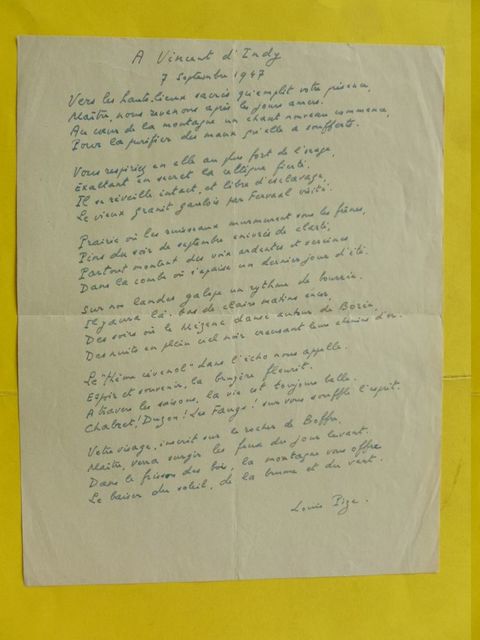 A Vincent d'Indy
7 Septembre 1947
Vers les hauts-lieux sacrés qu'emplit votre présence,
Maître, nous revenons après les jours amers.
Au cœur de la montagne un chant nouveau commence,
Pour la purifier des maux qu'elle a soufferts.
Vous respiriez en elle au plus fort de l'orage,
Exaltant en secret la celtique fierté.
Il se réveille intact, et libre d'esclavage,
Le vieux granit gaulois par Fervaal visité.
Prairie où les ruisseaux murmurent sous les frênes,
Pins du soir de septembre enivrés de clarté,
Partout montent des voix ardentes et sereines
Dans la combe où s'apaise un dernier jour d'été.
Sur nos landes galope un rythme de bourrée.
Il y aura là-bas de clairs matins
Des soirs où le Mézenc danse autour de Borée,
Des nuits en plein ciel noir creusant leur chemin d'or.
Le "Hêtre cévenol" dans l'écho nous appelle.
Espoir et souvenir, la bruyère fleurit.
A travers les saisons, la vie est toujours belle.
Chabret! Duzon! Les Faugs! sur vous souffle l'esprit.
Votre visage, inscrit sur le rocher de Boffre,
Maître, verra surgir les feux du jour levant.
Dans le frisson des bois, la montagne vous offre
Le baiser du soleil, de la brume et du vent.
Louis Pize.